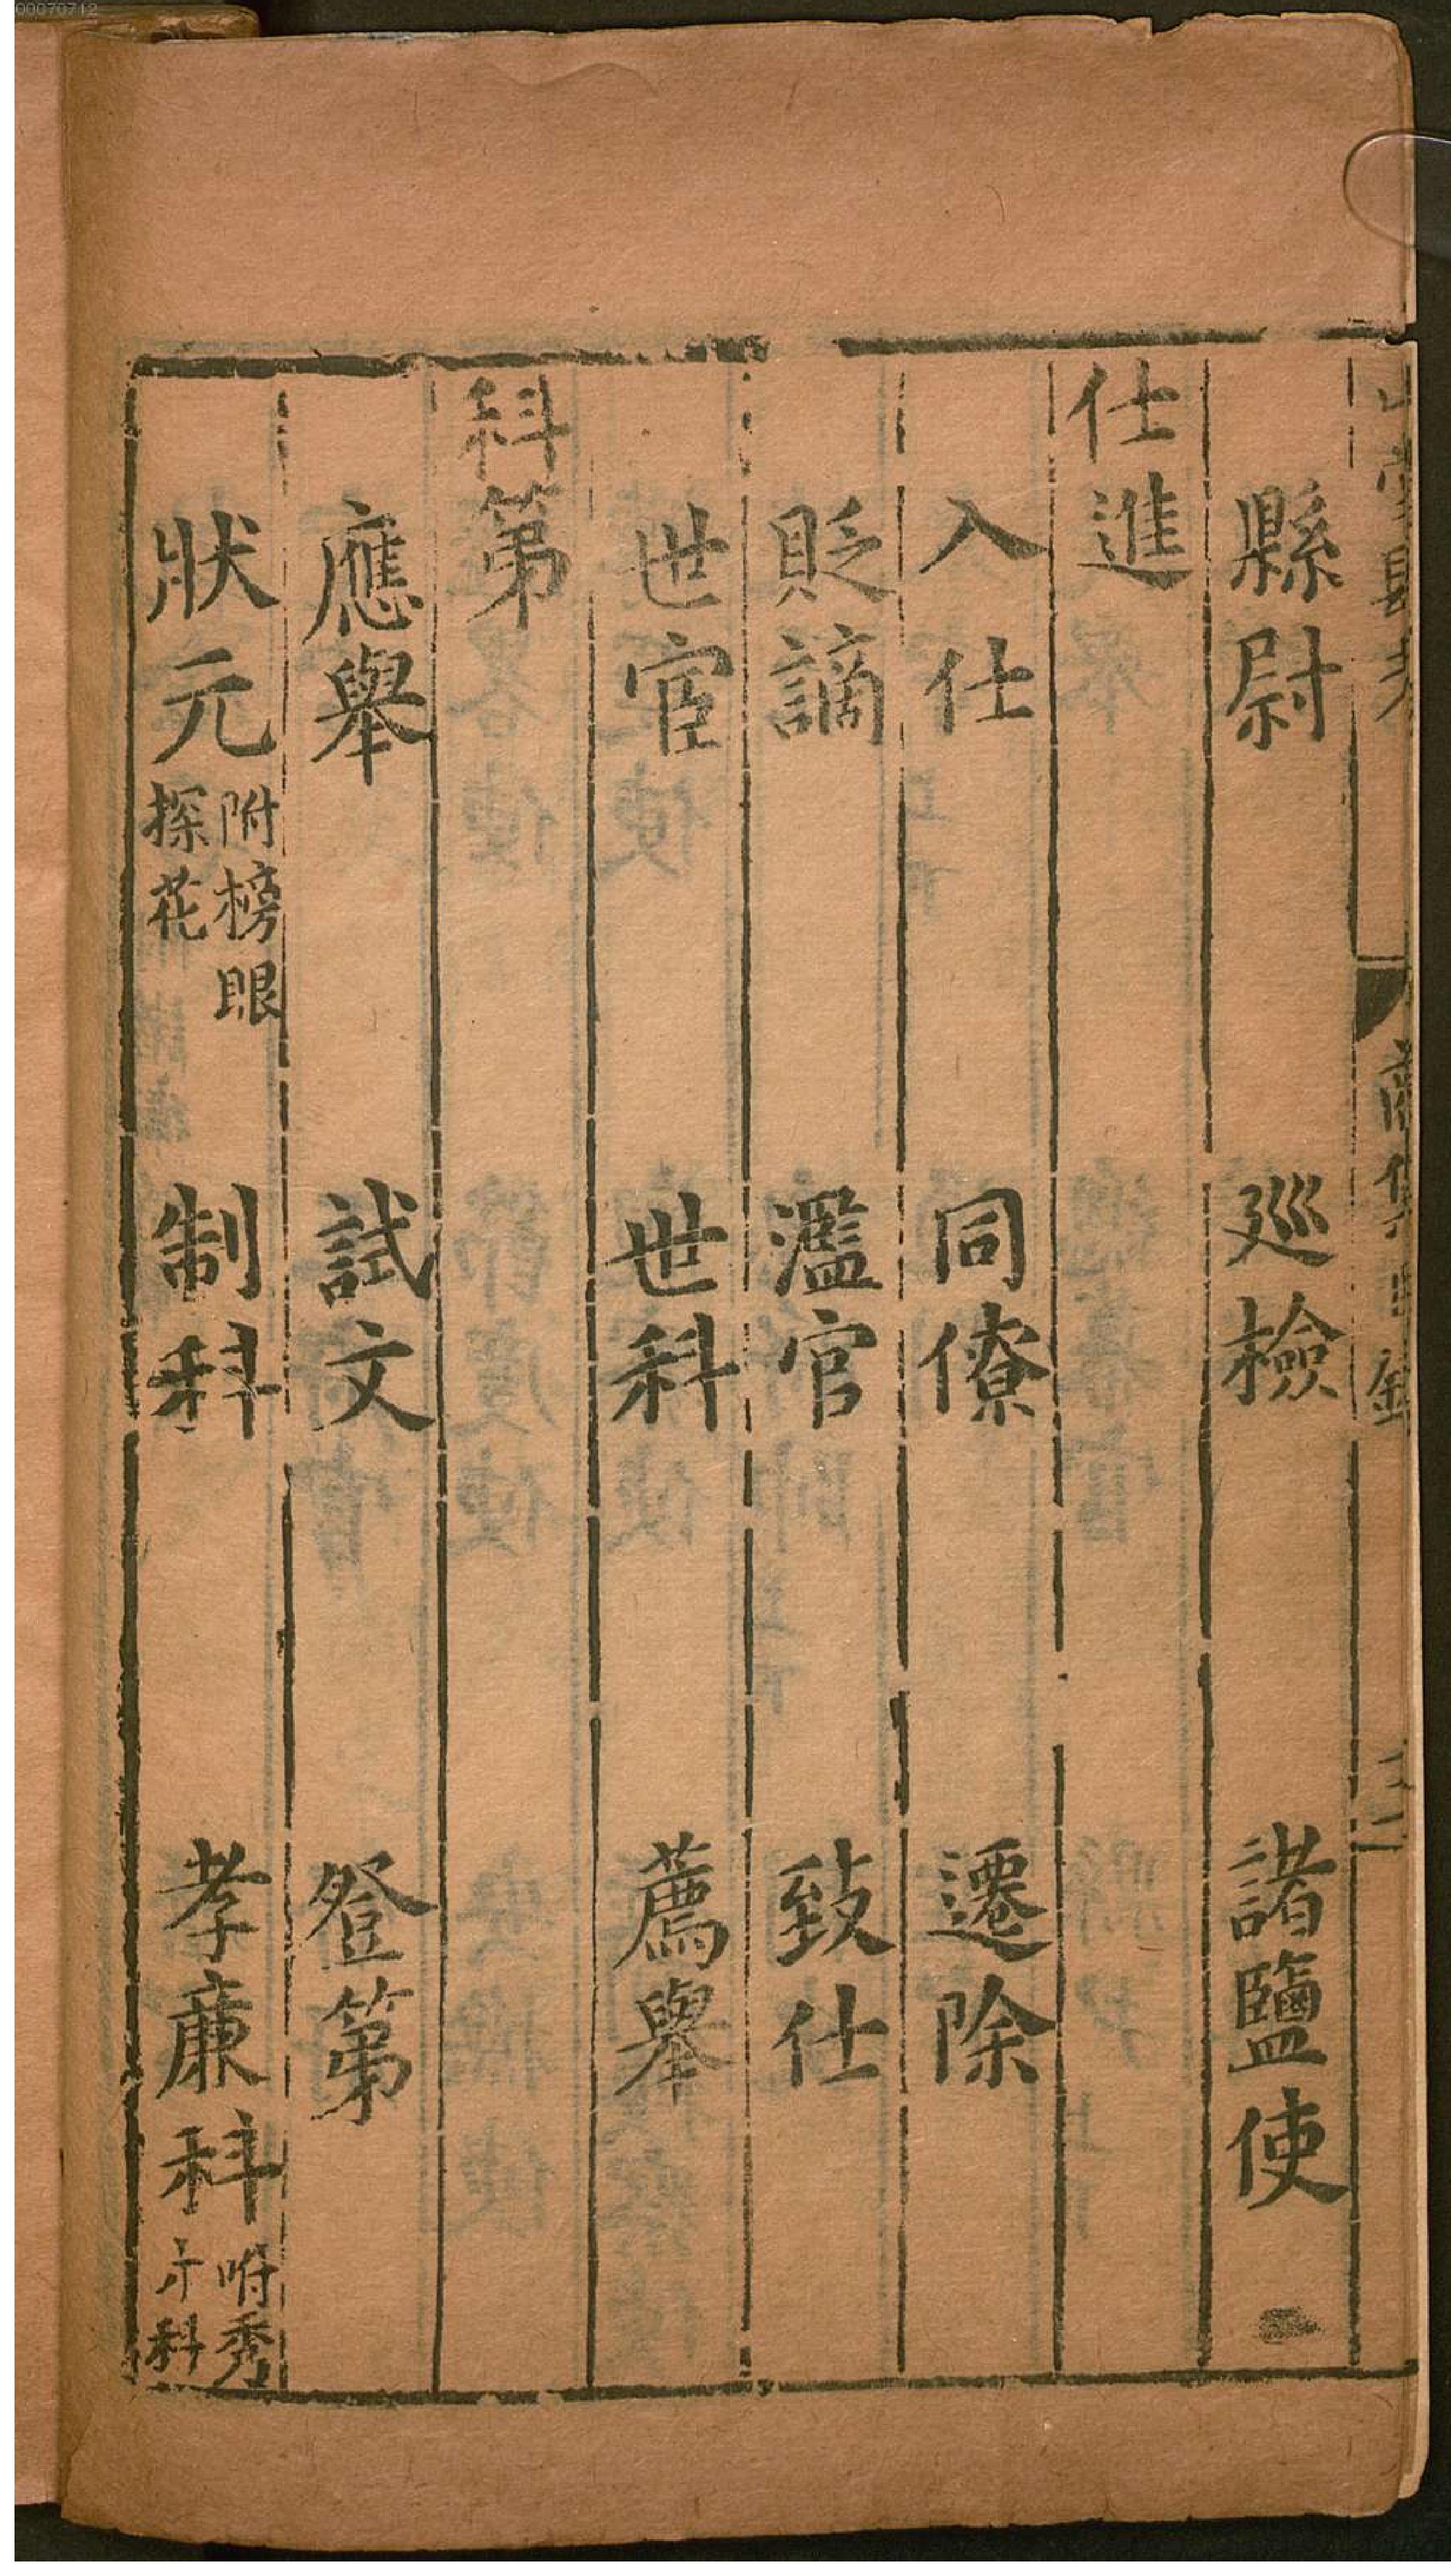 縣尉 廵檢 諸鹽使
仕進
入仕 同僚 遷除
貶謫 濫官 致仕
世宦 世科 薦舉
科第
應舉 試文 登第
狀元附榜眼探花 制科 孝亷科附秀才科
00070712